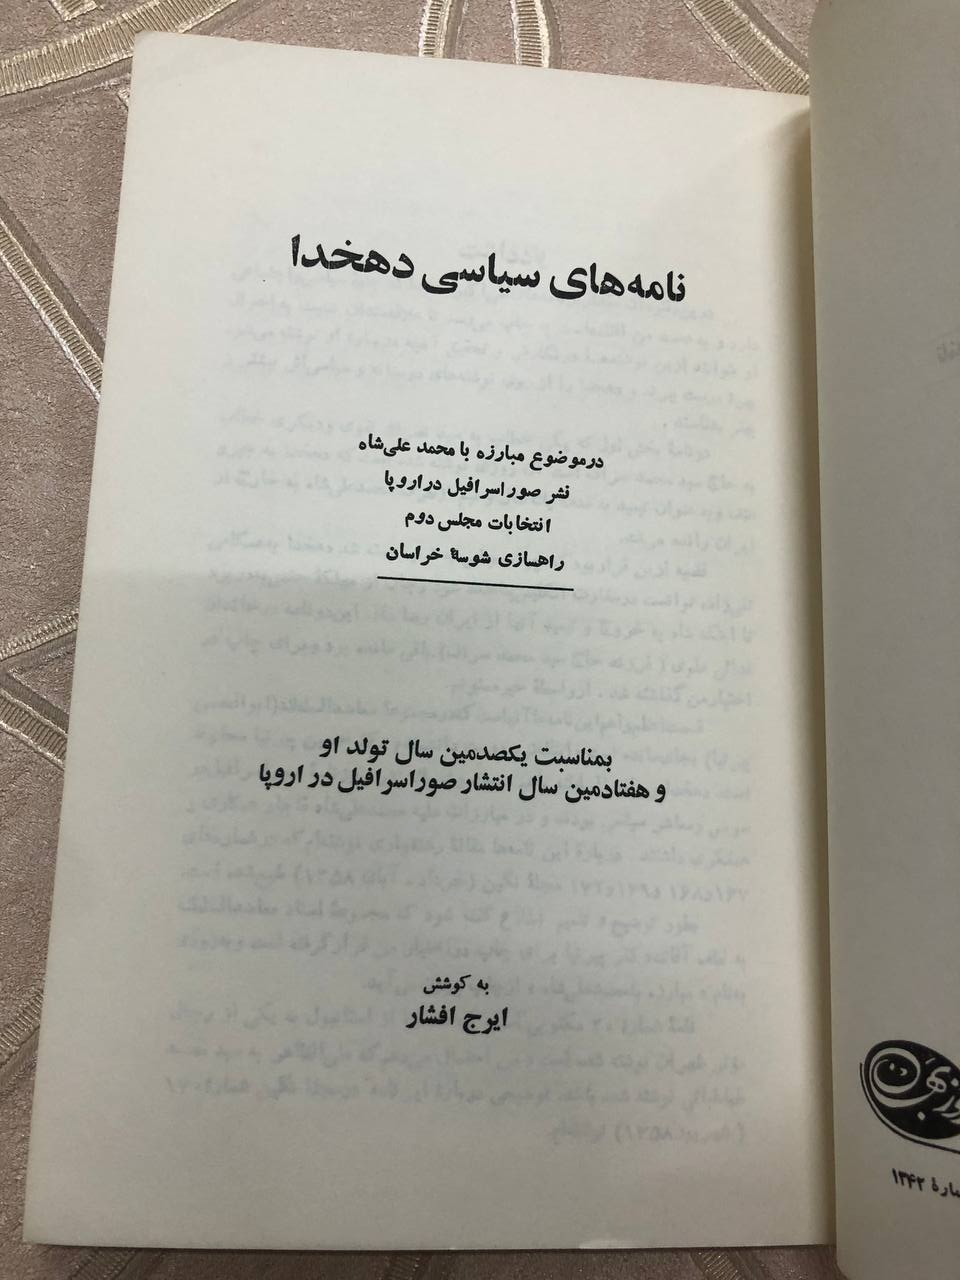 نامه‌های سیاسی دهخدا
درموضوع مبارزه با محمد علی‌شاه
نشر صوراسرافیل دراروپا
انتخابات مجلس دوم
راهسازی شوسهٔ خراسان
بمناسبت یکصدمین سال تولد او
و هفتادمین سال انتشار صوراسرافیل در اروپا
به کوشش
ایرج افشار
۱۳۴۲